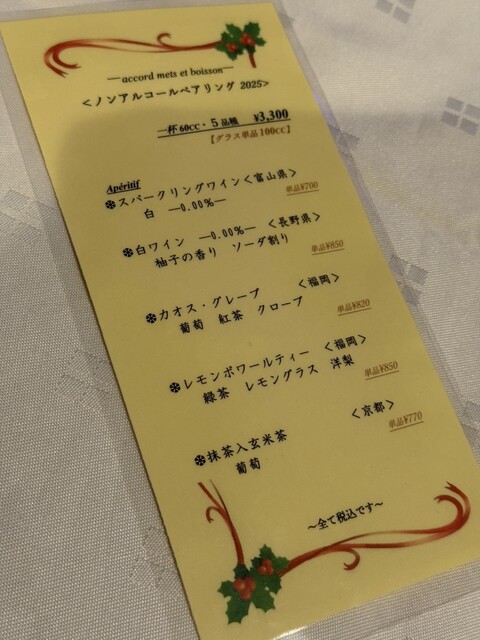 ―accord mets et boisson―
＜ノンアルコールペアリング 2025＞
一杯60CC・5品種 ¥3,300
【グラス単品100CC】
Apéritif
❄スパークリングワイン＜富山県＞
白 ―0.00%― 単品¥700
❄白ワイン ―0.00%― ＜長野県＞
柚子の香り ソーダ割り 単品¥850
❄カオス・グレープ ＜福岡＞
葡萄 紅茶 クローブ 単品¥820
❄レモンポワールティー ＜福岡＞
緑茶 レモングラス 洋梨 単品¥850
❄抹茶入玄米茶 ＜京都＞
葡萄 単品¥770
～全て税込です～